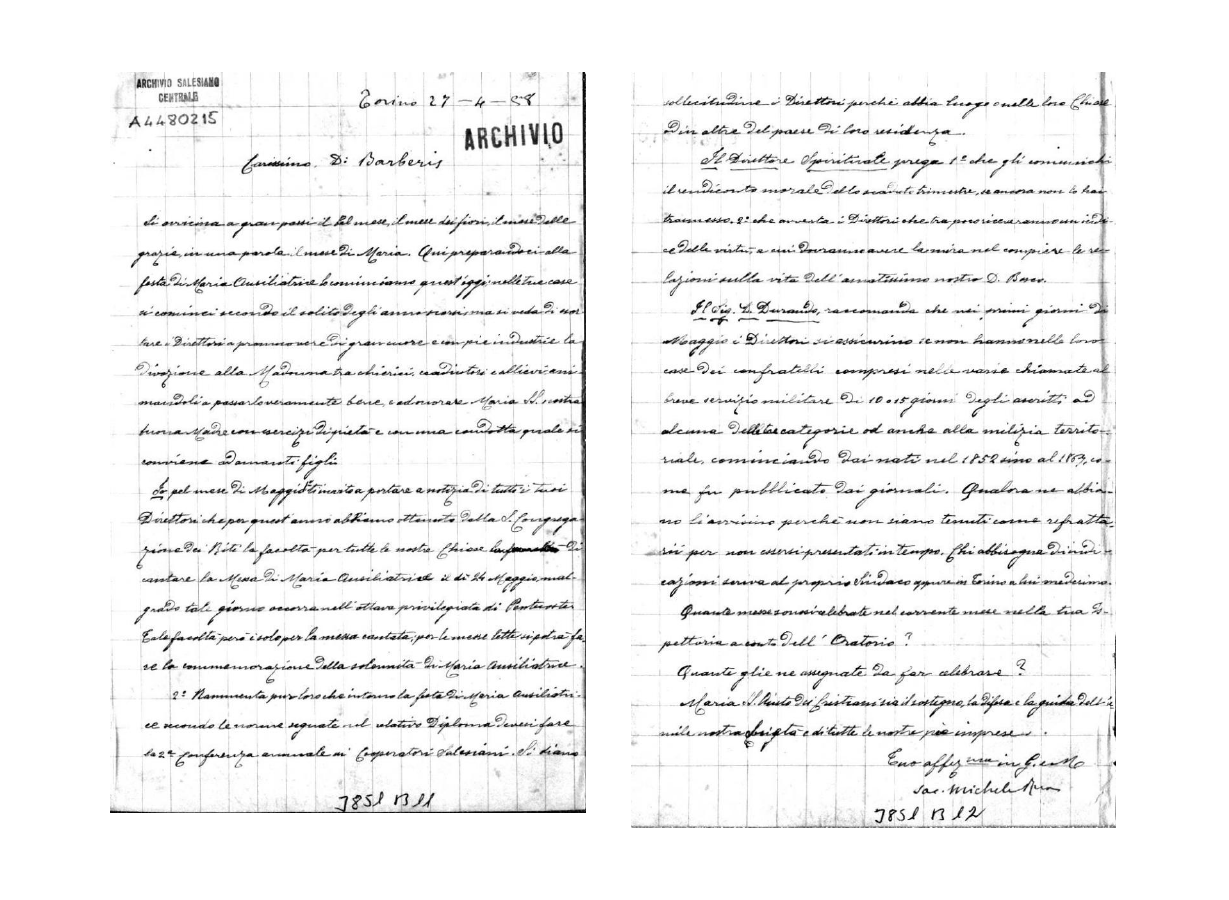 ARCHIVIO SALESIANO
CENTRALE
A4480215
Torino 27-4-88
ARCHIVIO
Carissimo D: Barberis
Si avvicina a gran passi il bel mese, il mese dei fiori, il mese delle
grazie, in una parola il mese di Maria. Qui preparandoci alla
festa di Maria Ausiliatrice lo cominciamo quest'oggi; nelle tue case
si cominci secondo il solito degli anni scorsi, ma si veda di esor
tare i Direttori a promuovere di gran cuore e con pie industrie la
divozione alla Madonna tra chierici, coadiutori e allievi ani
mandoli a passarlo veramente bene, e ad onorare Maria SS. nostra
buona Madre con esercizi di pietà e con una condotta quale si
conviene ad amanti figli.
Io pel mese di Maggio ti invito a portare a notizia di tutti i tuoi
Direttori che per quest'anno abbiamo ottenuto dalla S. Congrega
zione dei Riti la facoltà per tutte le nostre Chiese di
cantare la Messa di Maria Ausiliatrice il dì 24 Maggio, mal-
grado tale giorno occorra nell'ottava privilegiata di Pentecoste.
Tale facoltà però è solo per la messa cantata; per le messe lette si potrà fa
re la commemorazione della solennità di Maria Ausiliatrice.
2º Rammenta pur loro che intorno la festa di Maria Ausiliatri-
ce secondo le norme segnate nel relativo Diploma devesi fare
la 2ª Conferenza annuale ai Cooperatori Salesiani. Si diano
3851 B 11
sollecitudine i Direttori perchè abbia luogo o nelle loro Chiese
od in altre del paese di loro residenza.
Il Direttore Spirituale prega 1º che gli comunichi
il rendiconto morale dello scaduto trimestre, se ancora non lo hai
trasmesso. 2º che avverta i Direttori che tra poco riceveranno un indi-
ce delle virtù, a cui dovranno avere la mira nel compiere le re-
lazioni sulla vita dell'amatissimo nostro D. Bosco.
Il Sig. D. Durando, raccomanda che nei primi giorni di
Maggio i Direttori si assicurino se non hanno nelle loro
case dei confratelli compresi nelle varie chiamate al
breve servizio militare di 10 o 15 giorni degli ascritti ad
alcuna delle tre categorie od anche alla milizia territo-
riale, cominciando dai nati nel 1852 sino al 1863, co-
me fu pubblicato dai giornali. Qualora ne abbia-
no li avvisino perchè non siano tenuti come refratta-
rii per non essersi presentati in tempo. Chi abbisogna di indi-
cazioni scriva al proprio Sindaco oppure in Torino a lui medesimo.
Quante messe sonosi celebrate nel corrente mese nella tua Is-
pettoria a conto dell'Oratorio?
Quante glie ne assegnate da far celebrare?
Maria S. Aiuto dei Cristiani sia il sostegno, la difesa e la guida dell'u
mile nostra Società e di tutte le nostre pie imprese.
Tuo affez.mo in G. e M.
Sac. Michele Rua
3851 B 12